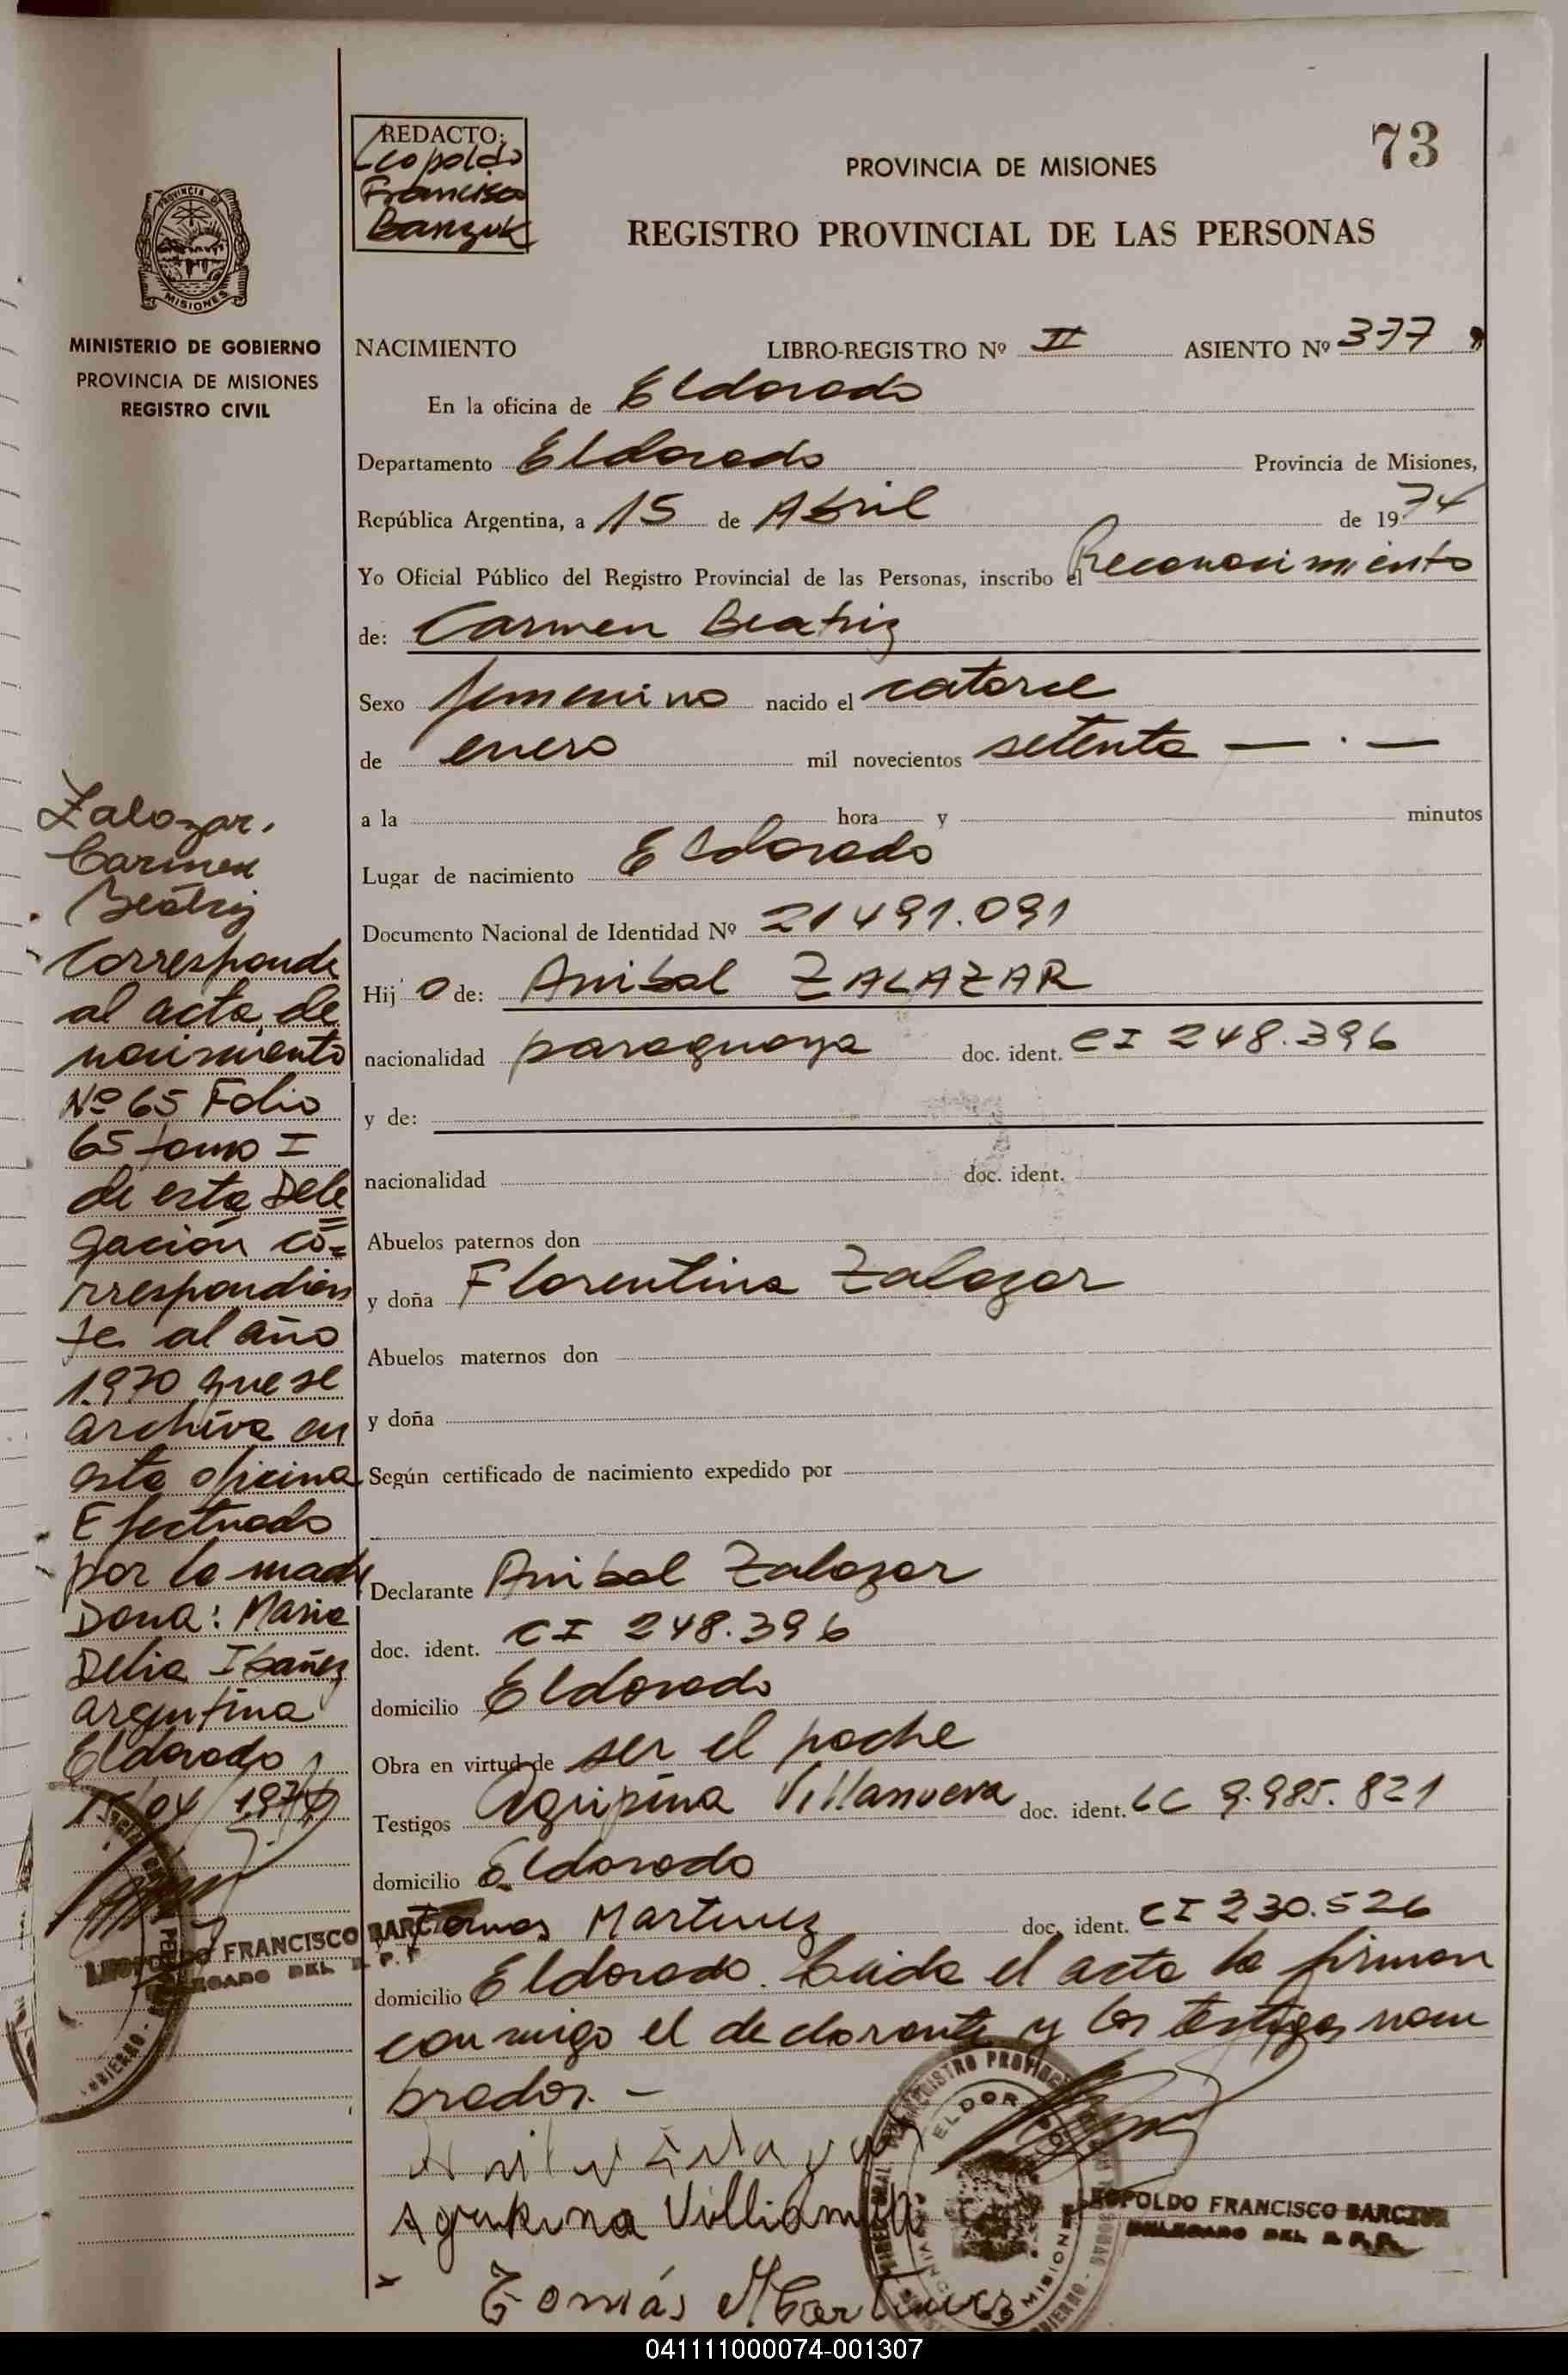 73
REDACTO:
Leopoldo
Francisco
PROVINCIA DE MISIONES
REGISTRO PROVINCIAL DE LAS PERSONAS
PROVINCIA DE
MISIONES
MINISTERIO DE GOBIERNO
PROVINCIA DE MISIONES
REGISTRO CIVIL
NACIMIENTO LIBRO-REGISTRO Nº II ASIENTO Nº 377
En la oficina de Eldorado
Departamento Eldorado Provincia de Misiones,
República Argentina, a 15 de Abril de 1974
Yo Oficial Público del Registro Provincial de las Personas, inscribo el Reconocimiento
de: Carmen Beatriz
Sexo femenino nacido el catorce
de enero mil novecientos setenta — . —
a la hora y minutos
Lugar de nacimiento Eldorado
Documento Nacional de Identidad Nº 21491.091
Hij o de: Anibal ZALAZAR
nacionalidad paraguaya doc. ident. CI 248.396
y de:
nacionalidad doc. ident.
Abuelos paternos don
y doña Florentina Zalazar
Abuelos maternos don
y doña
Según certificado de nacimiento expedido por
Declarante Anibal Zalazar
doc. ident. CI 248.396
domicilio Eldorado
Obra en virtud de ser el padre
Testigos Agripina Villanueva doc. ident. LC 9.985.821
domicilio Eldorado
Tomas Martinez doc. ident. CI 330.526
domicilio Eldorado. Leida el acta la firman
conmigo el declarante y los testigos nom
brados. -
Zalazar.
Carmen
Beatriz
Corresponde
al acta de
nacimiento
Nº 65 Folio
65 tomo I
de esta Dele
gación co=
rrespondien
te al año
1.970 que se
archiva en
esta oficina
Efectuado
por la madre
Dona: Maria
Delia Ibañez
argentina
Eldorado
15/04/1974
LEOPOLDO FRANCISCO
DELEGADO DEL R. P. P.
REGISTRO
ELDORADO
MISIONES
LEOPOLDO FRANCISCO BARCZUK
DELEGADO DEL R. P. P.
Tomás Martinez
041111000074-001307